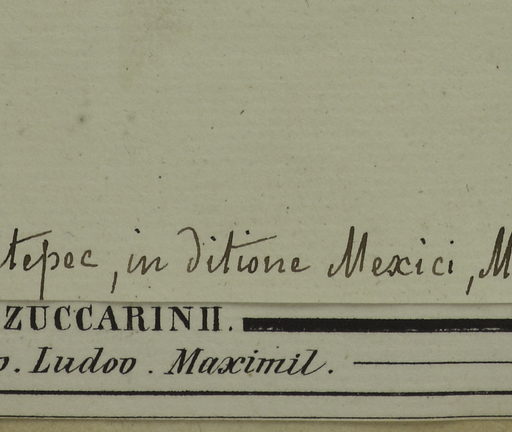 tepec, in ditione Mexici, M
ZUCCARINII.
o. Ludov. Maximil.